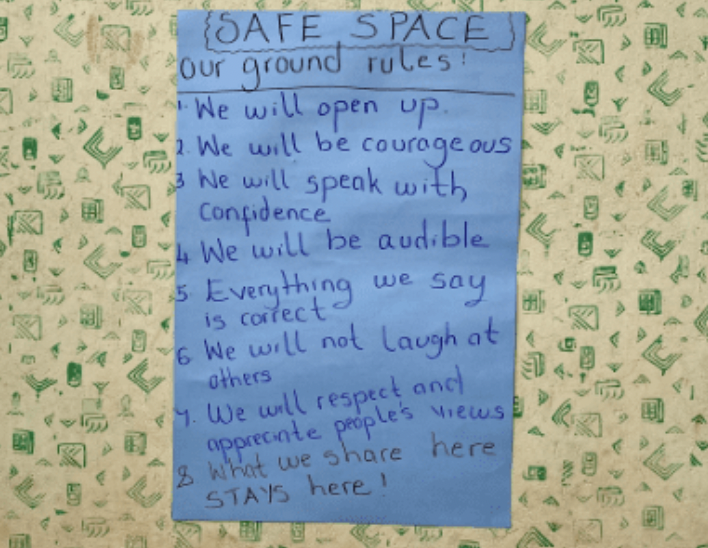 SAFE SPACE
Our ground rules!
1. We will open up.
2. We will be courageous
3 We will speak with
Confidence
4 We will be audible
5 Everything we say
is correct
6 We will not laugh at
others
7. We will respect and
appreciate people's views
8 What we share here
STAYS here!